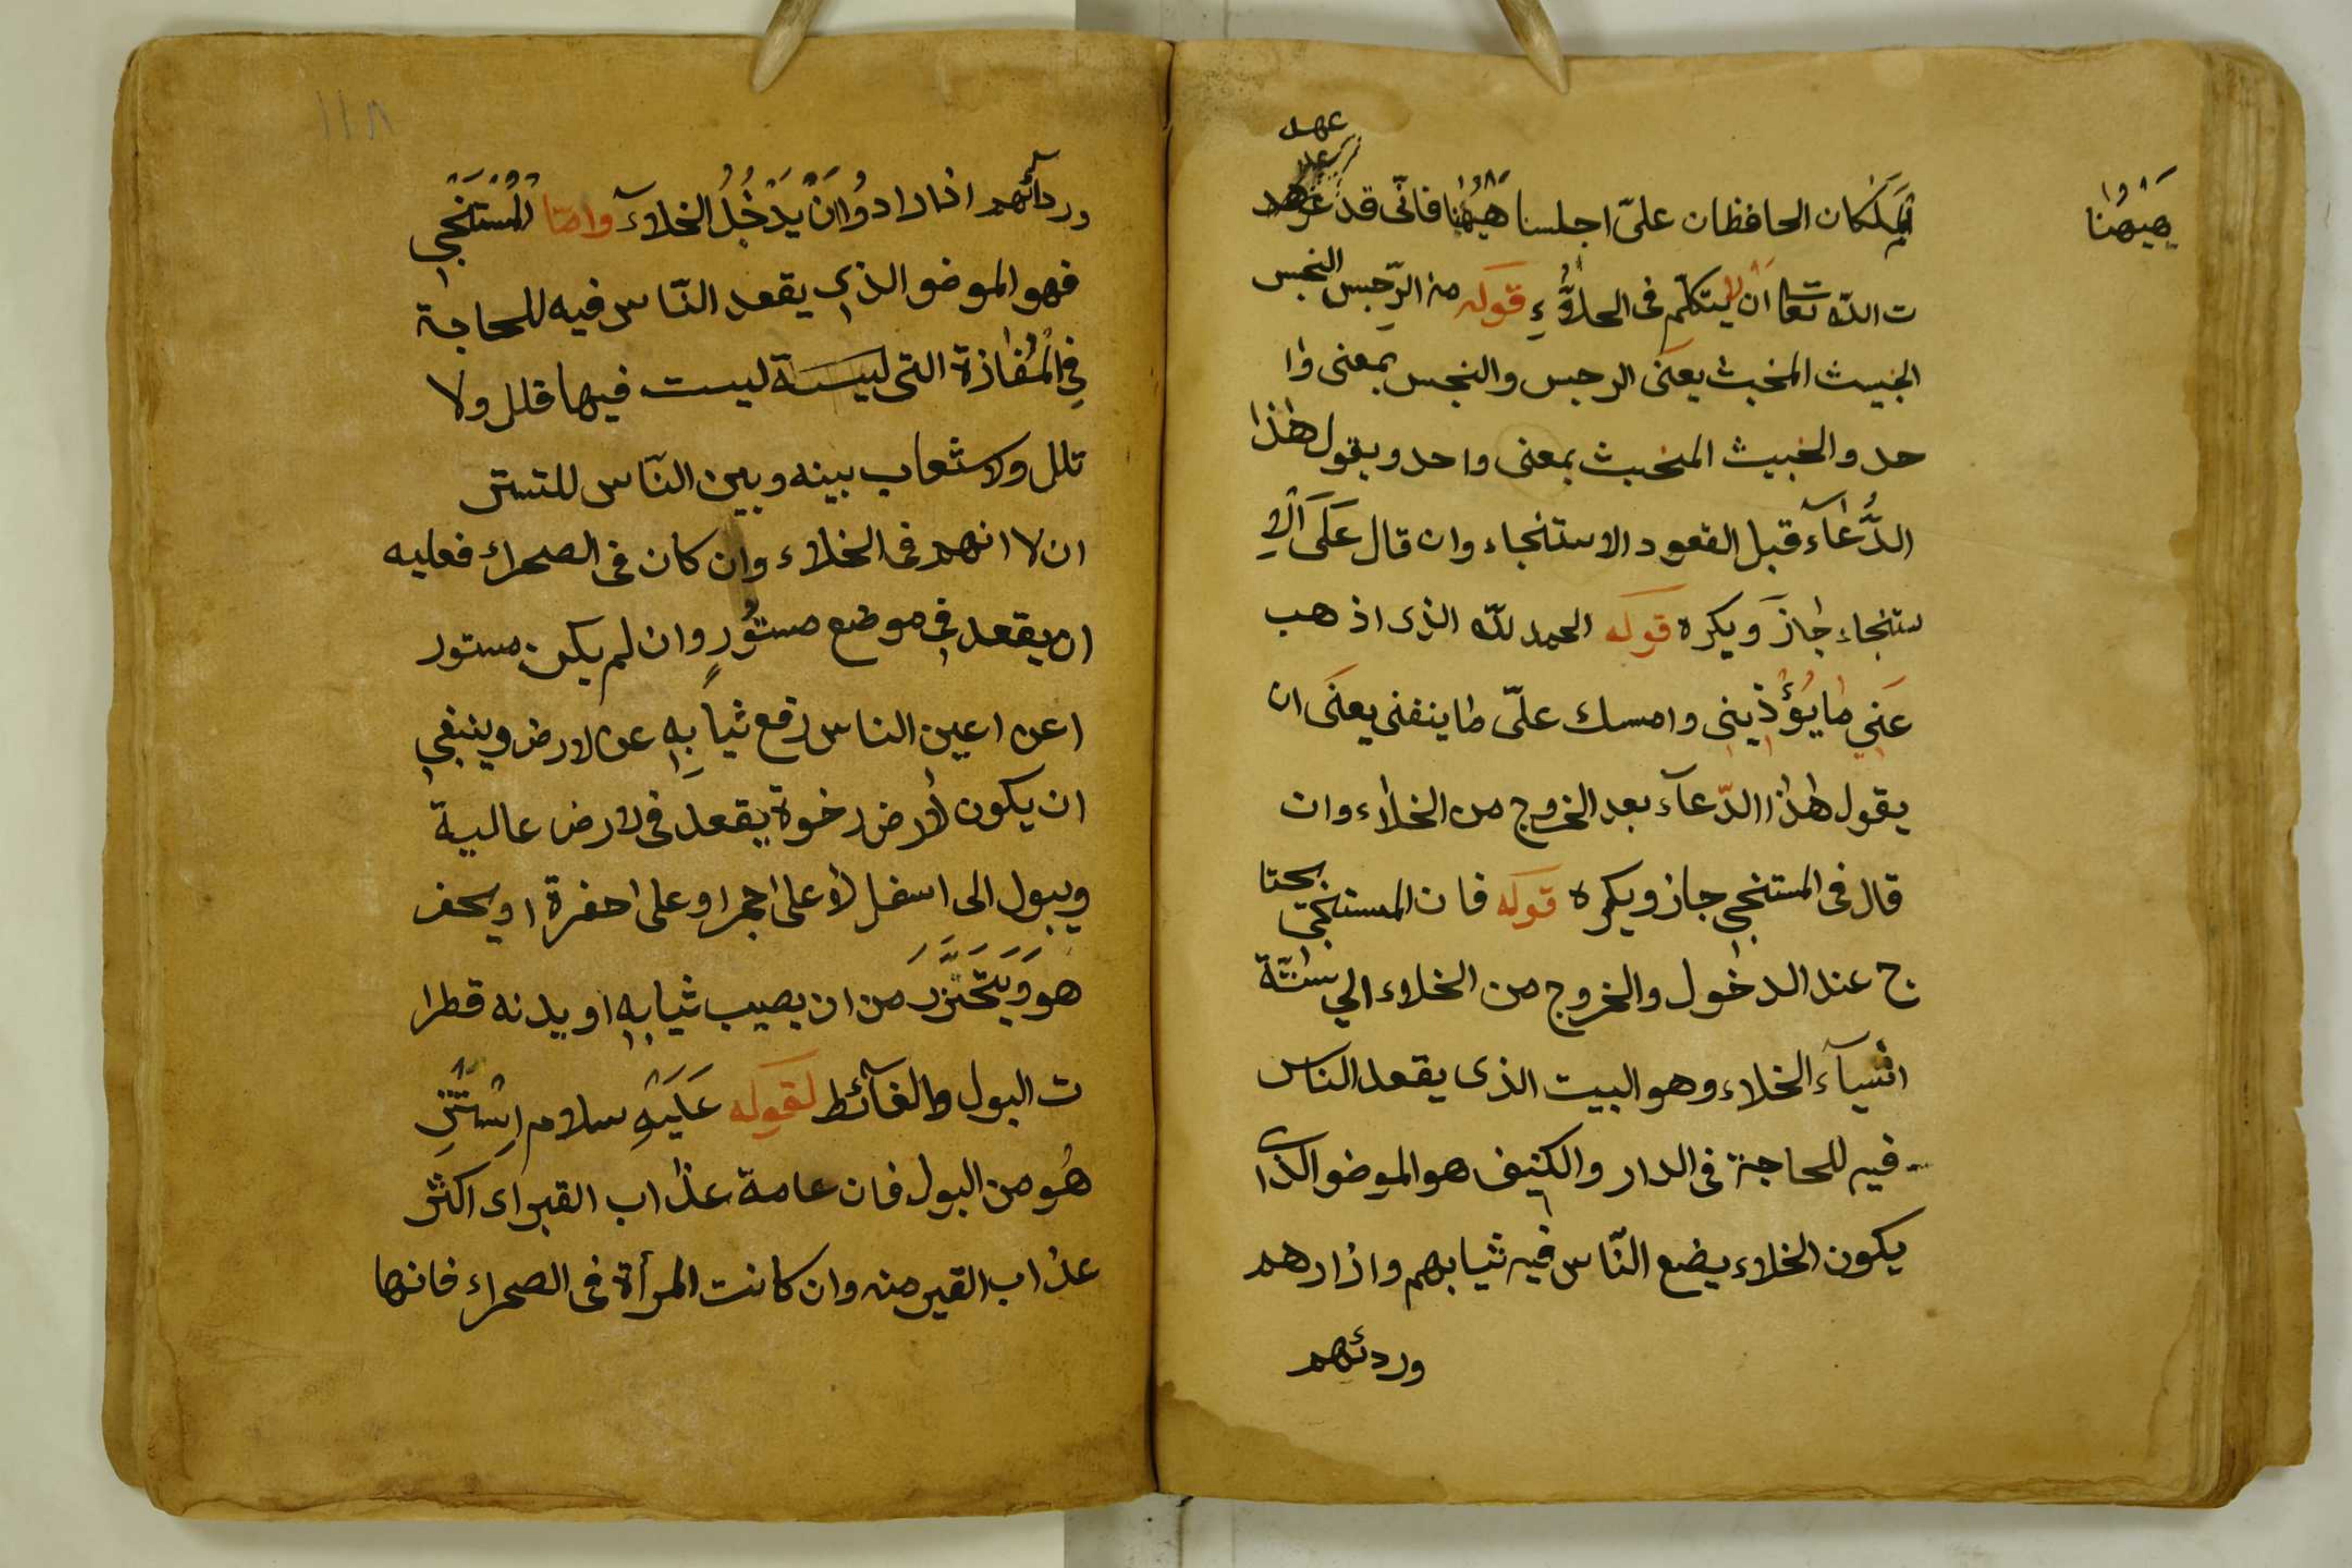 عهد
ايملكان الحافظان علىّ اجلسنا هيهنا فانّى قد
هيهنا
ت اللّه تعا ان لا يتكلّم فى الخلاء قوله من الرّجس النجس
الخبيث المخبث يعنى الرجس والنجس بمعنى وا
حد والخبيث المخبث بمعنى واحد ويقول هٰذا
الدُّعآء قبل القعود الاستنجاء وان قال عَلَى الاِ
ستنجاء جازَ ويكره قوله الحمد للّه الذى اذهب
عَنّي ما يُؤْذيني وامسك علىّ ما ينفنى يعنى ان
يقول هٰذا الدّعآء بعد الخروج من الخلاء وان
قال فى المستنجي جاز ويكره قوله فان المستنجى يحتا
ج عند الدخول والخروج من الخلاء الي ستّة
اشيآء الخلاء وهو البيت الذى يقعد الناس
فيه للحاجة فى الدار والكنيف هو الموضو الذى
يكون الخلاء يضع النّاس فيه ثيابهم وازارهم
وردئهم
١١٨
وردآئهم اذا رادوُا انْ يَدْخُلُ الخلآءَ وامّا المُسْتَنْجَي
فهو الموضو الذي يقعد النّاس فيه للحاجة
فِي الْمُفازة التى ليسة ليست فيها قلل ولا
تلل ولا شعاب بينه وبين النّاس للتستر
ان لا انهم فى الخلاء وان كان فى الصحراء فعليه
ان يقعد في موضع مستُورٍ وان لم يكن مستور
اعن اعين الناس رفع ثيابِهِ عن لارض وينبغي
ان يكون لأرض رخوة يقعد فى لارض عالية
ويبول الى اسفل لا على اجمر او على احفرة او يحفر
هو وَيَتَحَزَّرَ من ان يصيب ثيابه او بدنه قطرا
ت البول والغآئط لقوله عَلَيْهِ سلام اِسْتَنْزِ
هُو من البول فان عامة عذاب القبر اى اكثر
عذاب القبر منه وان كانت المرأة فى الصحراء فانها